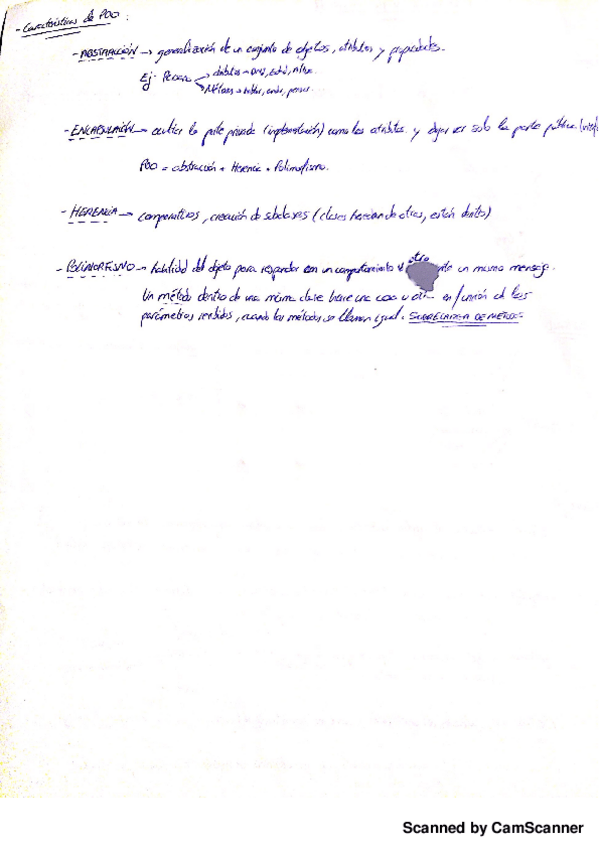 - Características de POO :
- ABSTRACCIÓN → generalización de un conjunto de objetos, atributos y propiedades.
Ej: Persona → atributos → DNI, edad, altura
→ Métodos → hablar, andar, pensar...
- ENCAPSULACIÓN → ocultar la parte privada (implementación) como los atributos y dejar ver solo la parte pública
POO = abstracción + Herencia + Polimorfismo.
- HERENCIA → comparativos, creación de subclases (clases heredan de otras, están dentro)
- POLIMORFISMO → habilidad del objeto para responder con un comportamiento u otro ante un mismo mensaje.
Un método dentro de una misma clase hace una cosa u otra en función de los
parámetros recibidos, cuando los métodos se llaman igual. SOBRECARGA DE MÉTODOS
Scanned by CamScanner